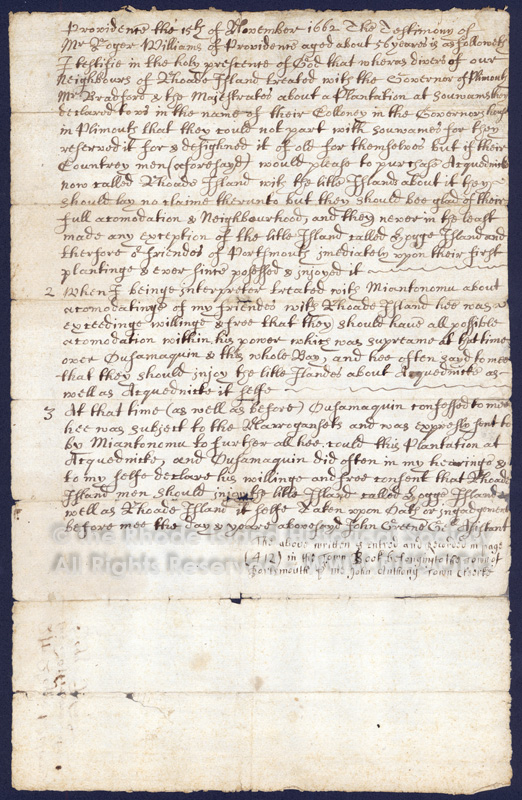 Providence the 15th of November 1662 The Testimony of
Mr Roger Williams of Providence aged about 56 yeares is as followeth
I testifie in the holy prescence of God that wheras divers of our
Neighbours of Rhoade Island treated with the Governor of Plimouth
Mr Bradford & the Majestrates about a Plantation at Sowwams they
declared to us in the name of their Colloney in the Governors house
in Plimouth that they could not part with Sowwames for they
reserved it for & desighned it of old for themselves but if their
Countrey men (aforesayd) would please to purchase Acquednicke
now called Rhoade Island with the litle Islands about it they
should lay no claime therunto but they should bee glad of their
full acomodation & Neighbourhood, and they never in the least
made any exception of the litle Island called Hogge Island and
therfore or friendes of Portsmouth imediately upon their first
plantinge & ever since posessed & injoyed it
2 When I beinge interpretor treated with Miantonomu about
acomodatinge of my friendes with Rhoade Island hee was
exceedinge willinge & free that they should have all possible
acomodation within his power which was supreame at that time
over Ousamaquin & this whole Bay, and hee often sayd to mee
that they should injoy the litle Ilandes about Acquednicke as
well as Acquednicke it selfe
3 At that time (as well as before) Ousamaquin confessed to mee
hee was subject to the Narrogansets and was expressly sent to
by Miantonomu to further all hee could this Plantation at
Acquednicke, and Ousamaquin did often in my hearings &
to my selfe declare his willinge and free consent that Rhoade
Island men should injoy the litle Island called Hogge Island
well as Rhoade Island it selfe Taken upon Oath or ingadgement
before mee the day & yeare abovesayd John Greene Asistant
The above written is Entred and Recorded in page
(412) in the Town Book belonging to the town of
Portsmouth John Anthony Town Clerke
© The Rhode Island Historical Society
All Rights Reserved